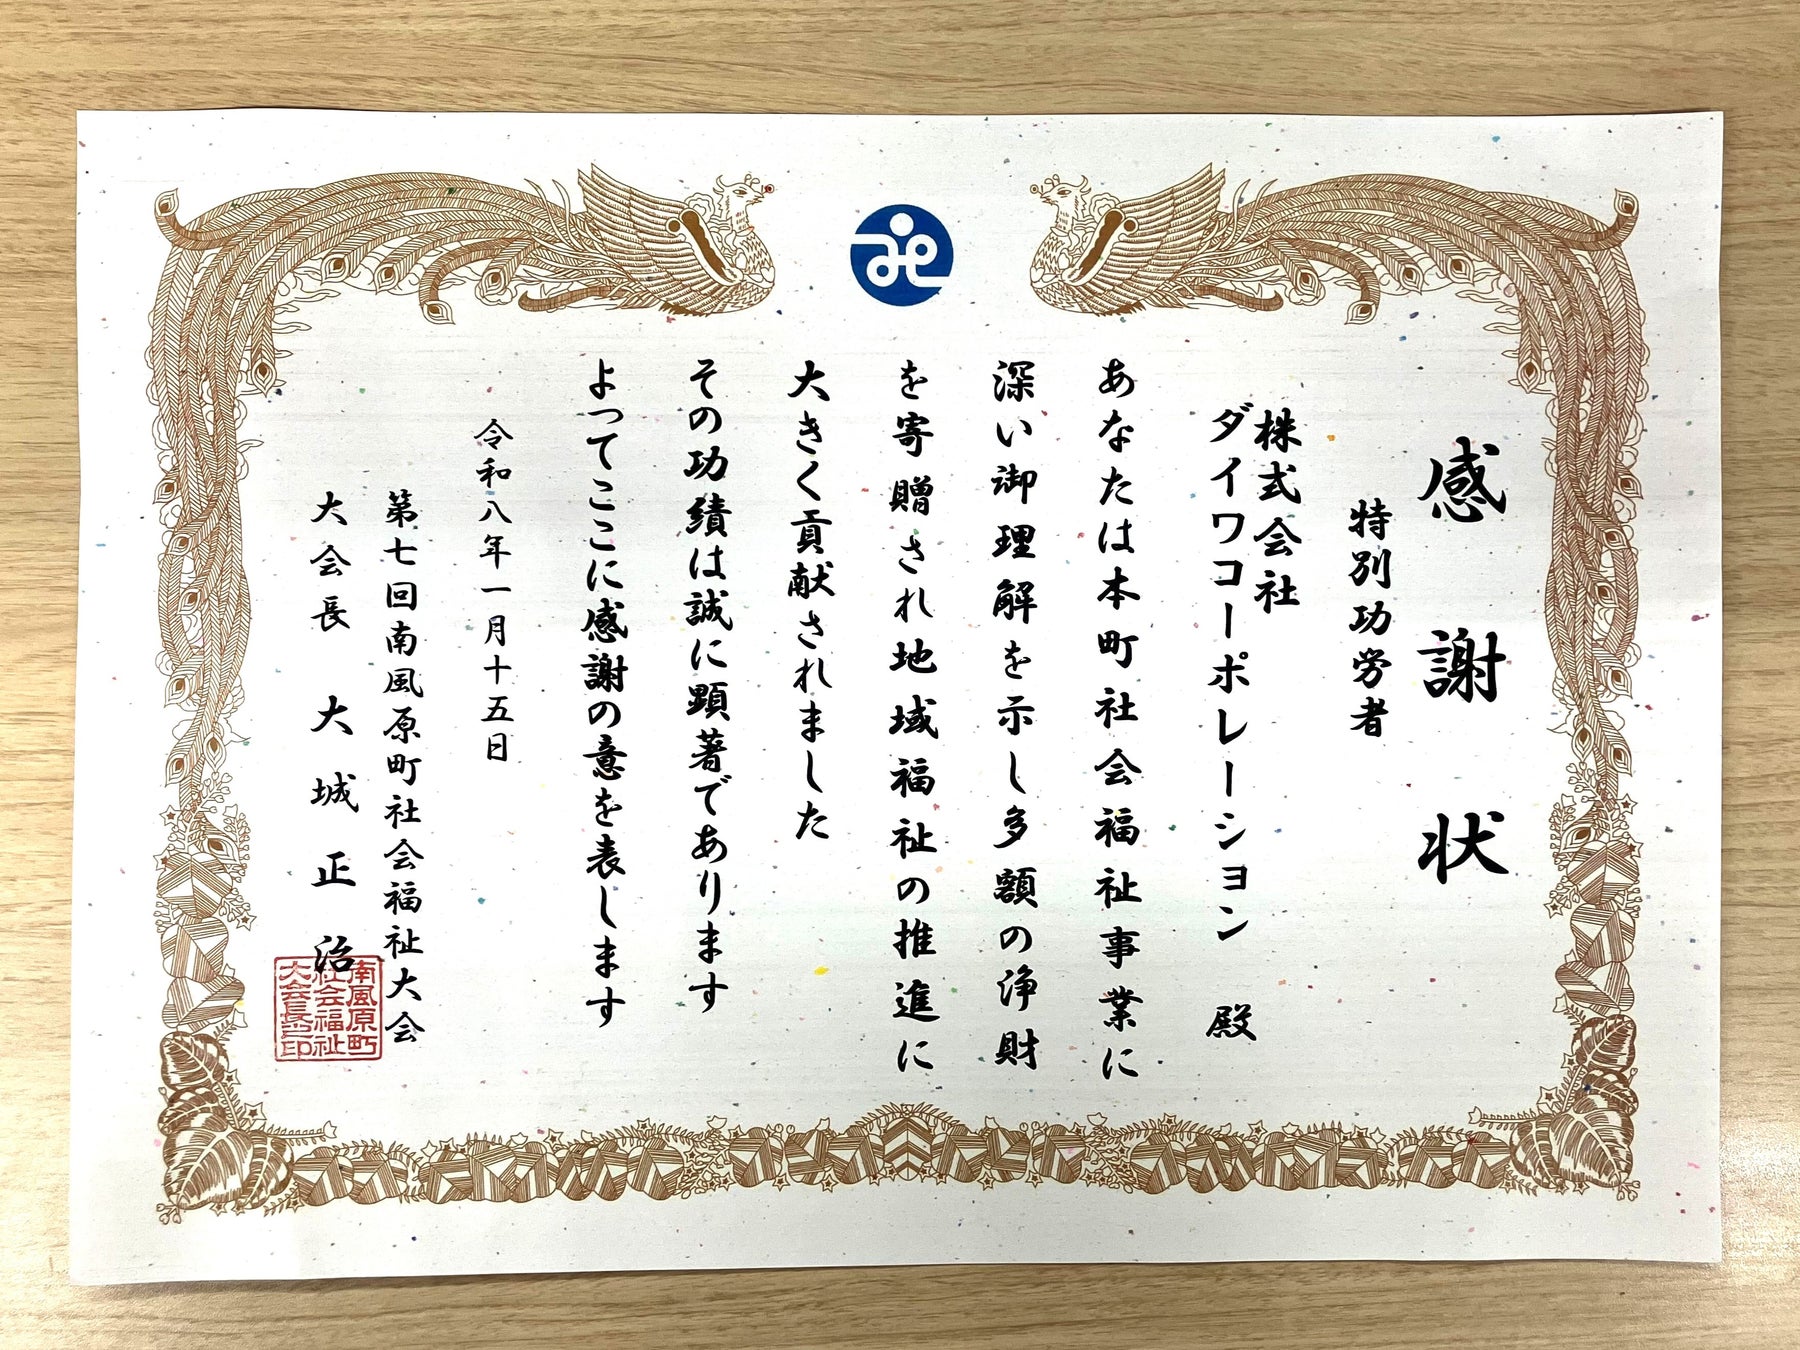 感謝状
特別功労者
株式会社
ダイワコーポレーション 殿
あなたは本町社会福祉事業に
深い御理解を示し多額の浄財
を寄贈され地域福祉の推進に
大きく貢献されました
その功績は誠に顕著であります
よってここに感謝の意を表します
令和八年一月十五日
第七回南風原町社会福祉大会
大会長 大城正治
南風原町
社会福祉
大会長印